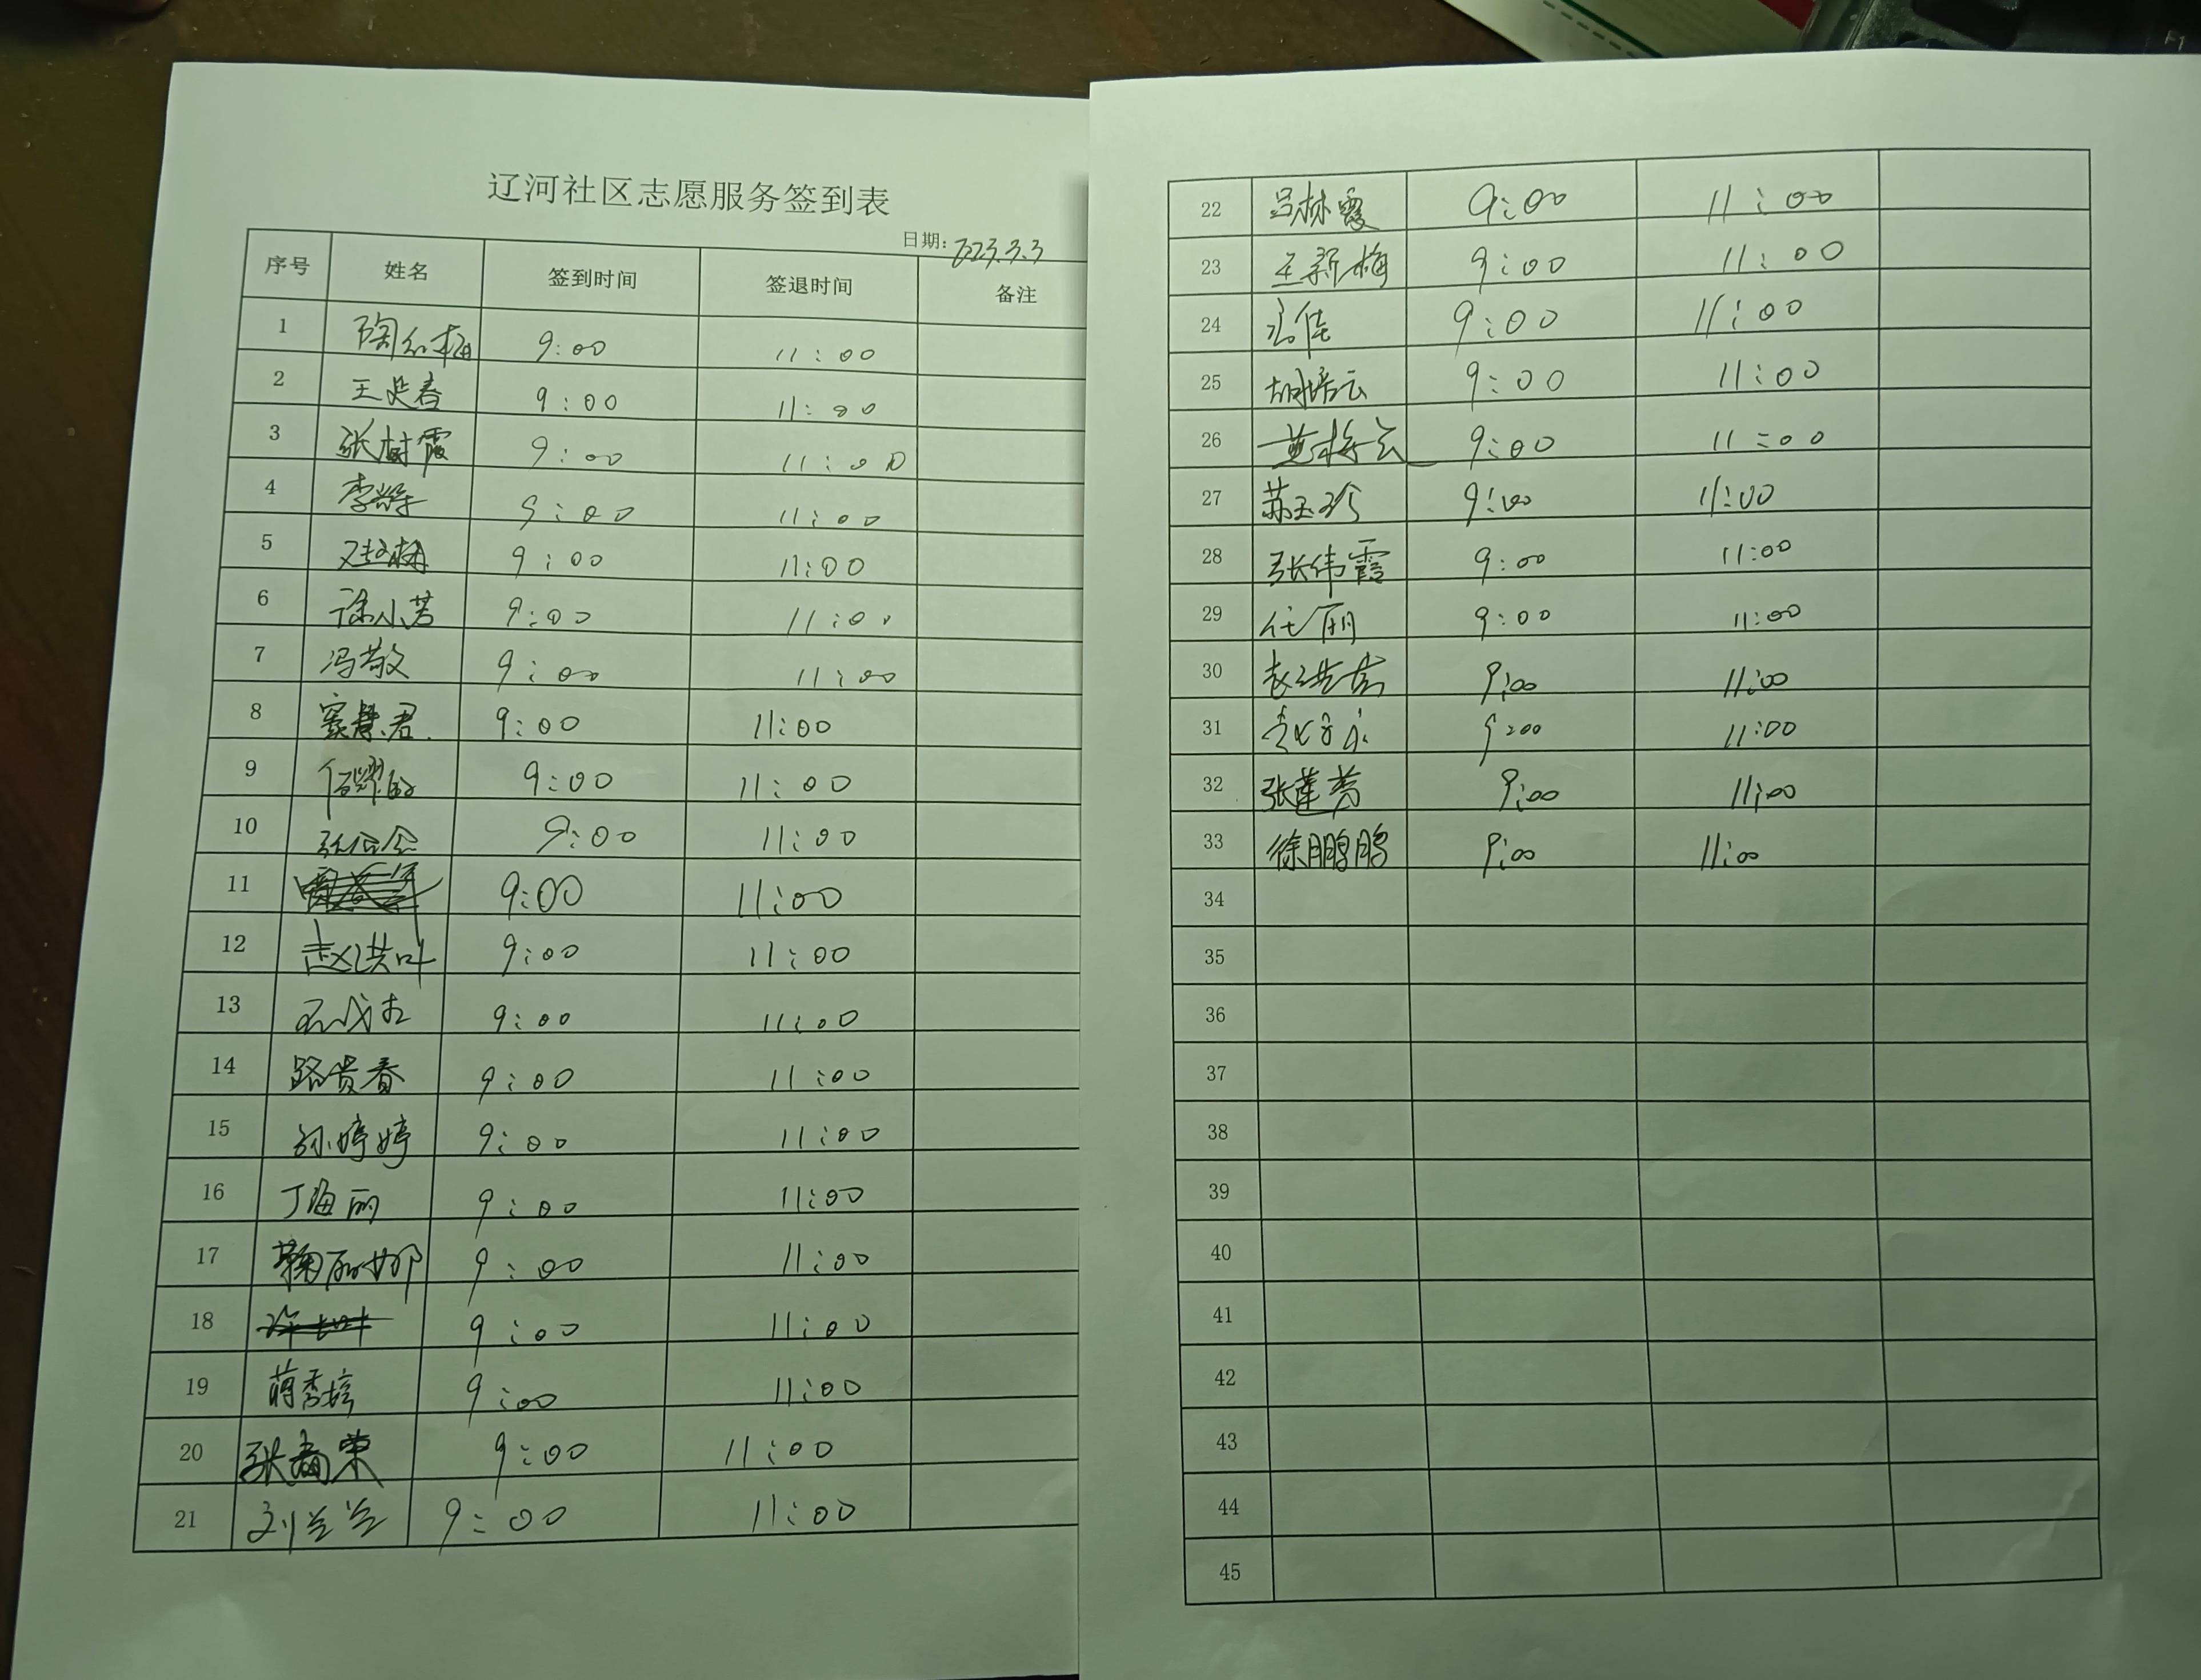 辽河社区志愿服务签到表
日期: 2023.3.3
序号 姓名 签到时间 签退时间 备注
1 陶红梅 9:00 11:00
2 王延春 9:00 11:00
3 张树霞 9:00 11:00
4 9:00 11:00
5 9:00 11:00
6 徐小芳 9:00 11:00
7 冯敬文 9:00 11:00
8 窦慧君 9:00 11:00
9 9:00 11:00
10 9:00 11:00
11 9:00 11:00
12 赵洪叶 9:00 11:00
13 9:00 11:00
14 路贵春 9:00 11:00
15 孙婷婷 9:00 11:00
16 丁海丽 9:00 11:00
17 鞠丽娜 9:00 11:00
18 9:00 11:00
19 蒋秀婷 9:00 11:00
20 张春荣 9:00 11:00
21 刘兰兰 9:00 11:00
22 吕林霞 9:00 11:00
23 王新梅 9:00 11:00
24 9:00 11:00
25 胡培云 9:00 11:00
26 黄梅云 9:00 11:00
27 苏玉珍 9:00 11:00
28 张伟霞 9:00 11:00
29 任丽 9:00 11:00
30 9:00 11:00
31 9:00 11:00
32 张莲芳 9:00 11:00
33 徐鹏鹏 9:00 11:00
34
35
36
37
38
39
40
41
42
43
44
45